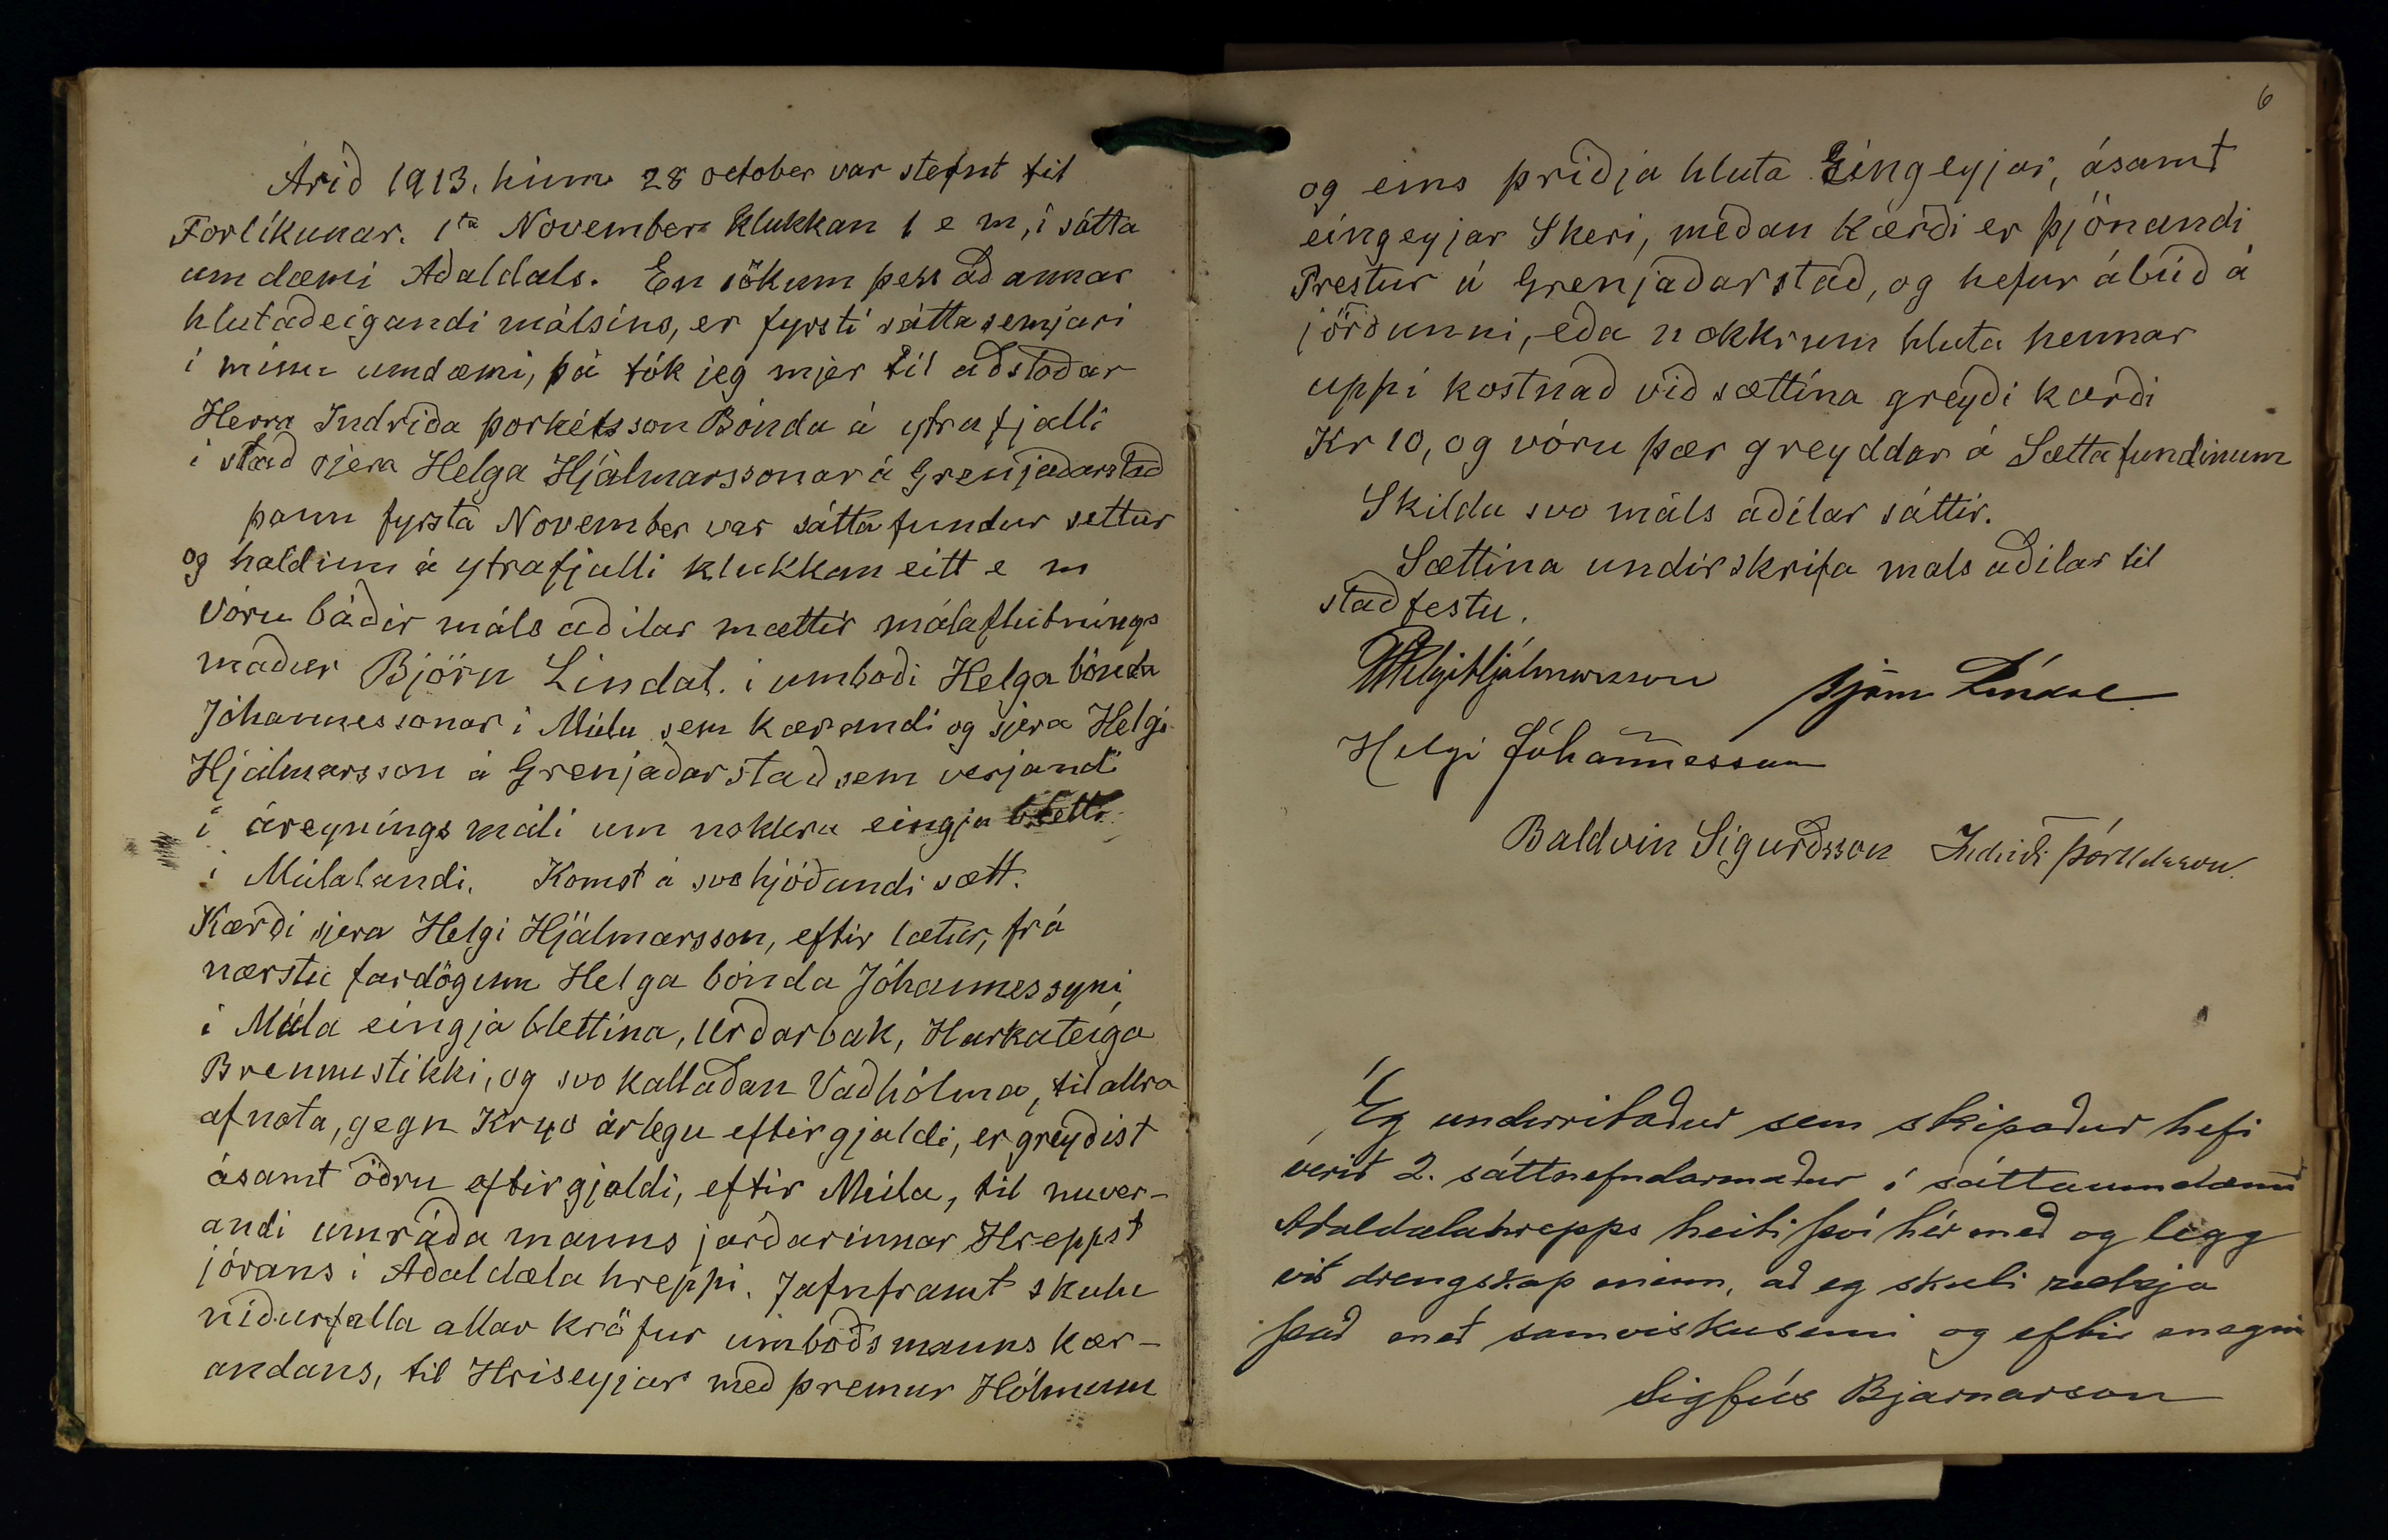 Árið 1913. hinn 28 october var stefnt til
Forlíkunar. 1ta November klukkan 1 e m, í sátta
umdæmi Aðaldals. En sökum þess að annar
hlutaðeigandi málsins, er fyrsti sáttasemjari
í mínu umdæmi, þá tók jeg mjer til aðstoðar
Herra Indriða þorkélsson Bónda á ytrafjalli
í stað sjera Helga Hjálmarssonar á Grenjaðarstað
þann fyrsta November var sáttafundur settur
og haldinn á ytrafjalli klukkan eitt e m
vóru báðir máls aðilar mættir málaflutnings
maður Björn Lindal. í umboði Helga bónda
Jóhannessonar í Múla sem kærandi og sjera Helgi
Hjálmarsson á Grenjaðarstað sem verjandi
í áreyningsmáli um nokkra eingja bletti
í Múlalandi. Komst á svohjóðandi sætt.
Kærði sjera Helgi Hjálmarsson, eftir lætur, frá
nærstu fardögum Helga bónda Jóhannessyni
í Múla eingja blettina, Urðarbak, Hurkateiga
Brennustikki, og svo kallaðan Vaðhólma, til allra
afnota, gegn Kr 40 árlegu eftirgjaldi, er greyðist
ásamt öðru eftirgjaldi, eftir Múla, til nuver-
andi umráða manns jarðarinnar Hreppst
jórans í Aðaldæla hreppi. Jafnframt skulu
niðurfalla allar kröfur umboðsmanns kær-
andans, til Hriseyjar með þremur Hólmum
6
og eins þriðja hluta Eingeyjar, ásamt
eingeyjar Skeri, meðan Kærði er þjónandi
Prestur á Grenjaðarstað, og hefur ábúð á
jörðunni, eða nokkrum hluta hennar
uppí kostnað við sættina greyði kærði
Kr 10, og vóru þær greyddar á Sættafundinum
Skildu svo máls aðilar sáttir.
Sættina undirskrifa mals aðilar til
staðfestu.
Helgi Hjálmarsson Björn Líndal
Helgi Jóhannesson
Baldvin Sigurðsson Indriði Þórkelsson
Eg undirritaður sem skipaður hefi
verið 2. sáttnefndarmaður í sáttaumdæmi
Aðaldælahrepps heiti því hér með og legg
við drengskap minn, að eg skuli rækja
það með samviskusemi og eftir megni
Sigfús Bjarnarson